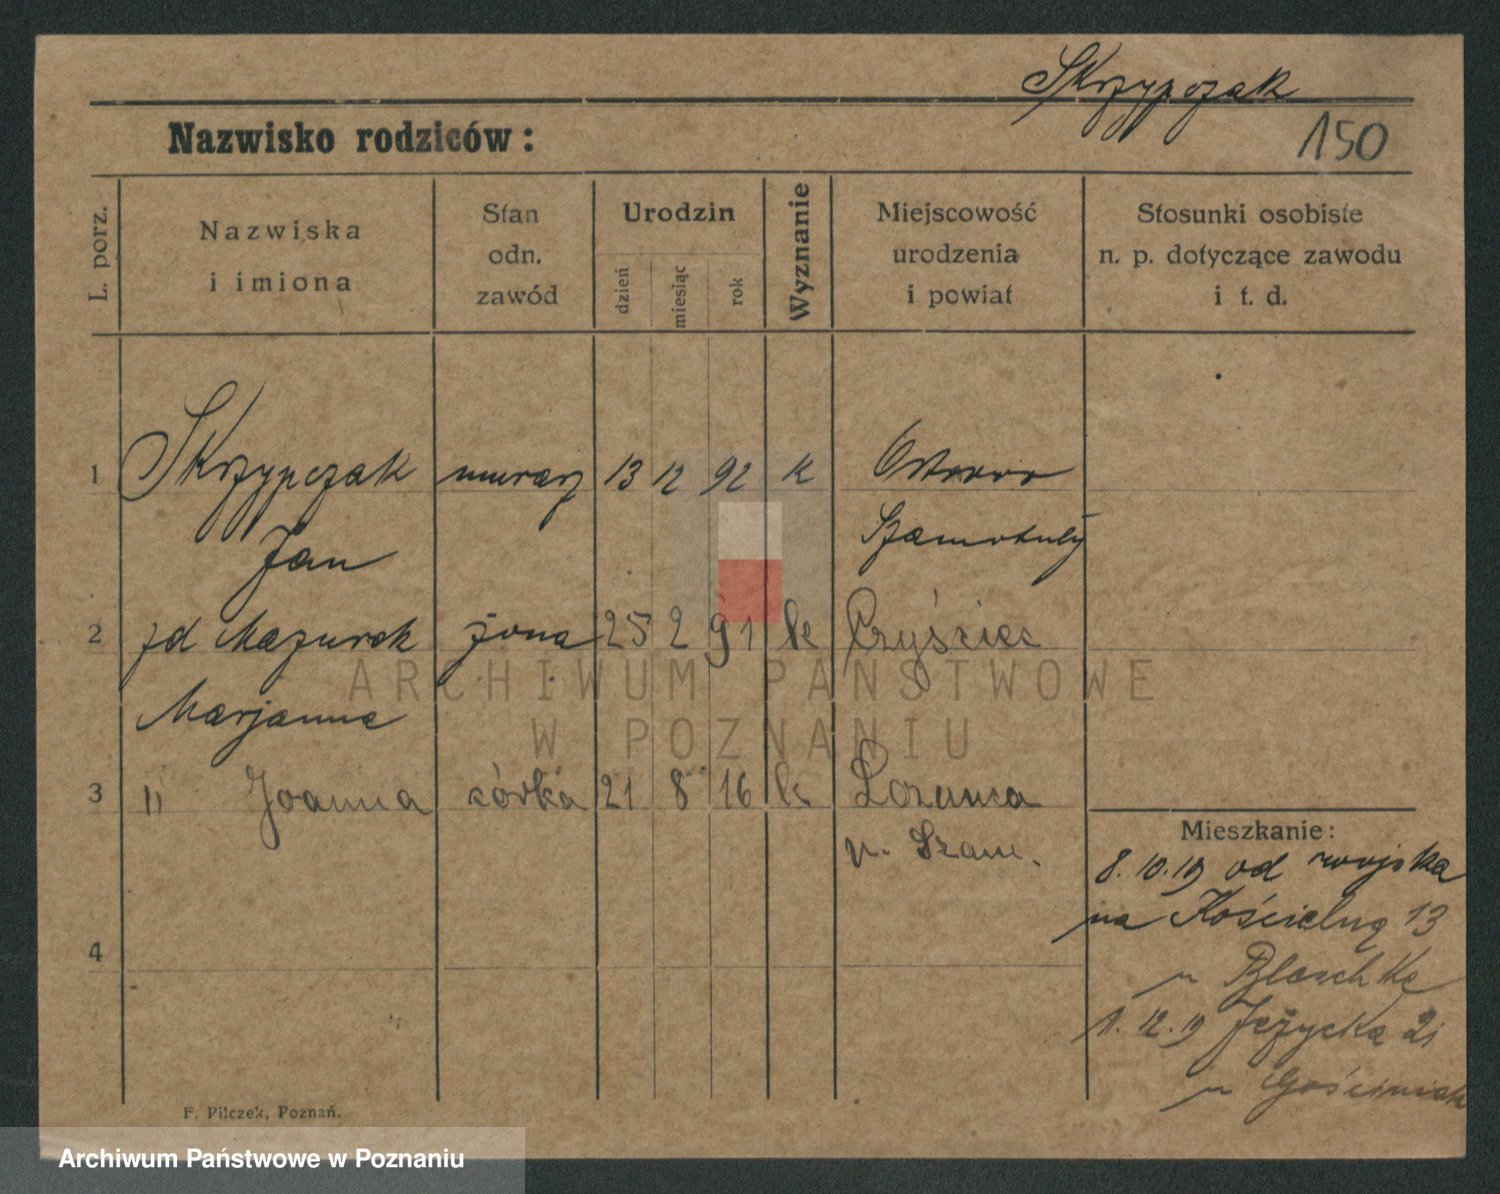 Skrzypczak
150
Nazwisko rodziców:
L. porz.
Nazwiska
i imiona
Stan
odn.
zawód
Urodzin
dzień
miesiąc
rok
Wyznanie
Miejscowość
urodzenia
i powiat
Stosunki osobiste
n. p. dotyczące zawodu
i t. d.
1 Skrzypczak murarz 13 12 92 k Ostrowo
Jan Szamotuły
2 zd Mazurek żona 25 2 91 k
Marjanna
3 " Joanna córka 21 8 16 k
p. Szam.
4
Mieszkanie:
8.10.19 od wojska
na Kościelną 13
u Blaschke
1.12.19 Jeżycka 21
u Gościniak
F. Pilczek, Poznań.
ARCHIWUM PAŃSTWOWE
W POZNANIU
Archiwum Państwowe w Poznaniu